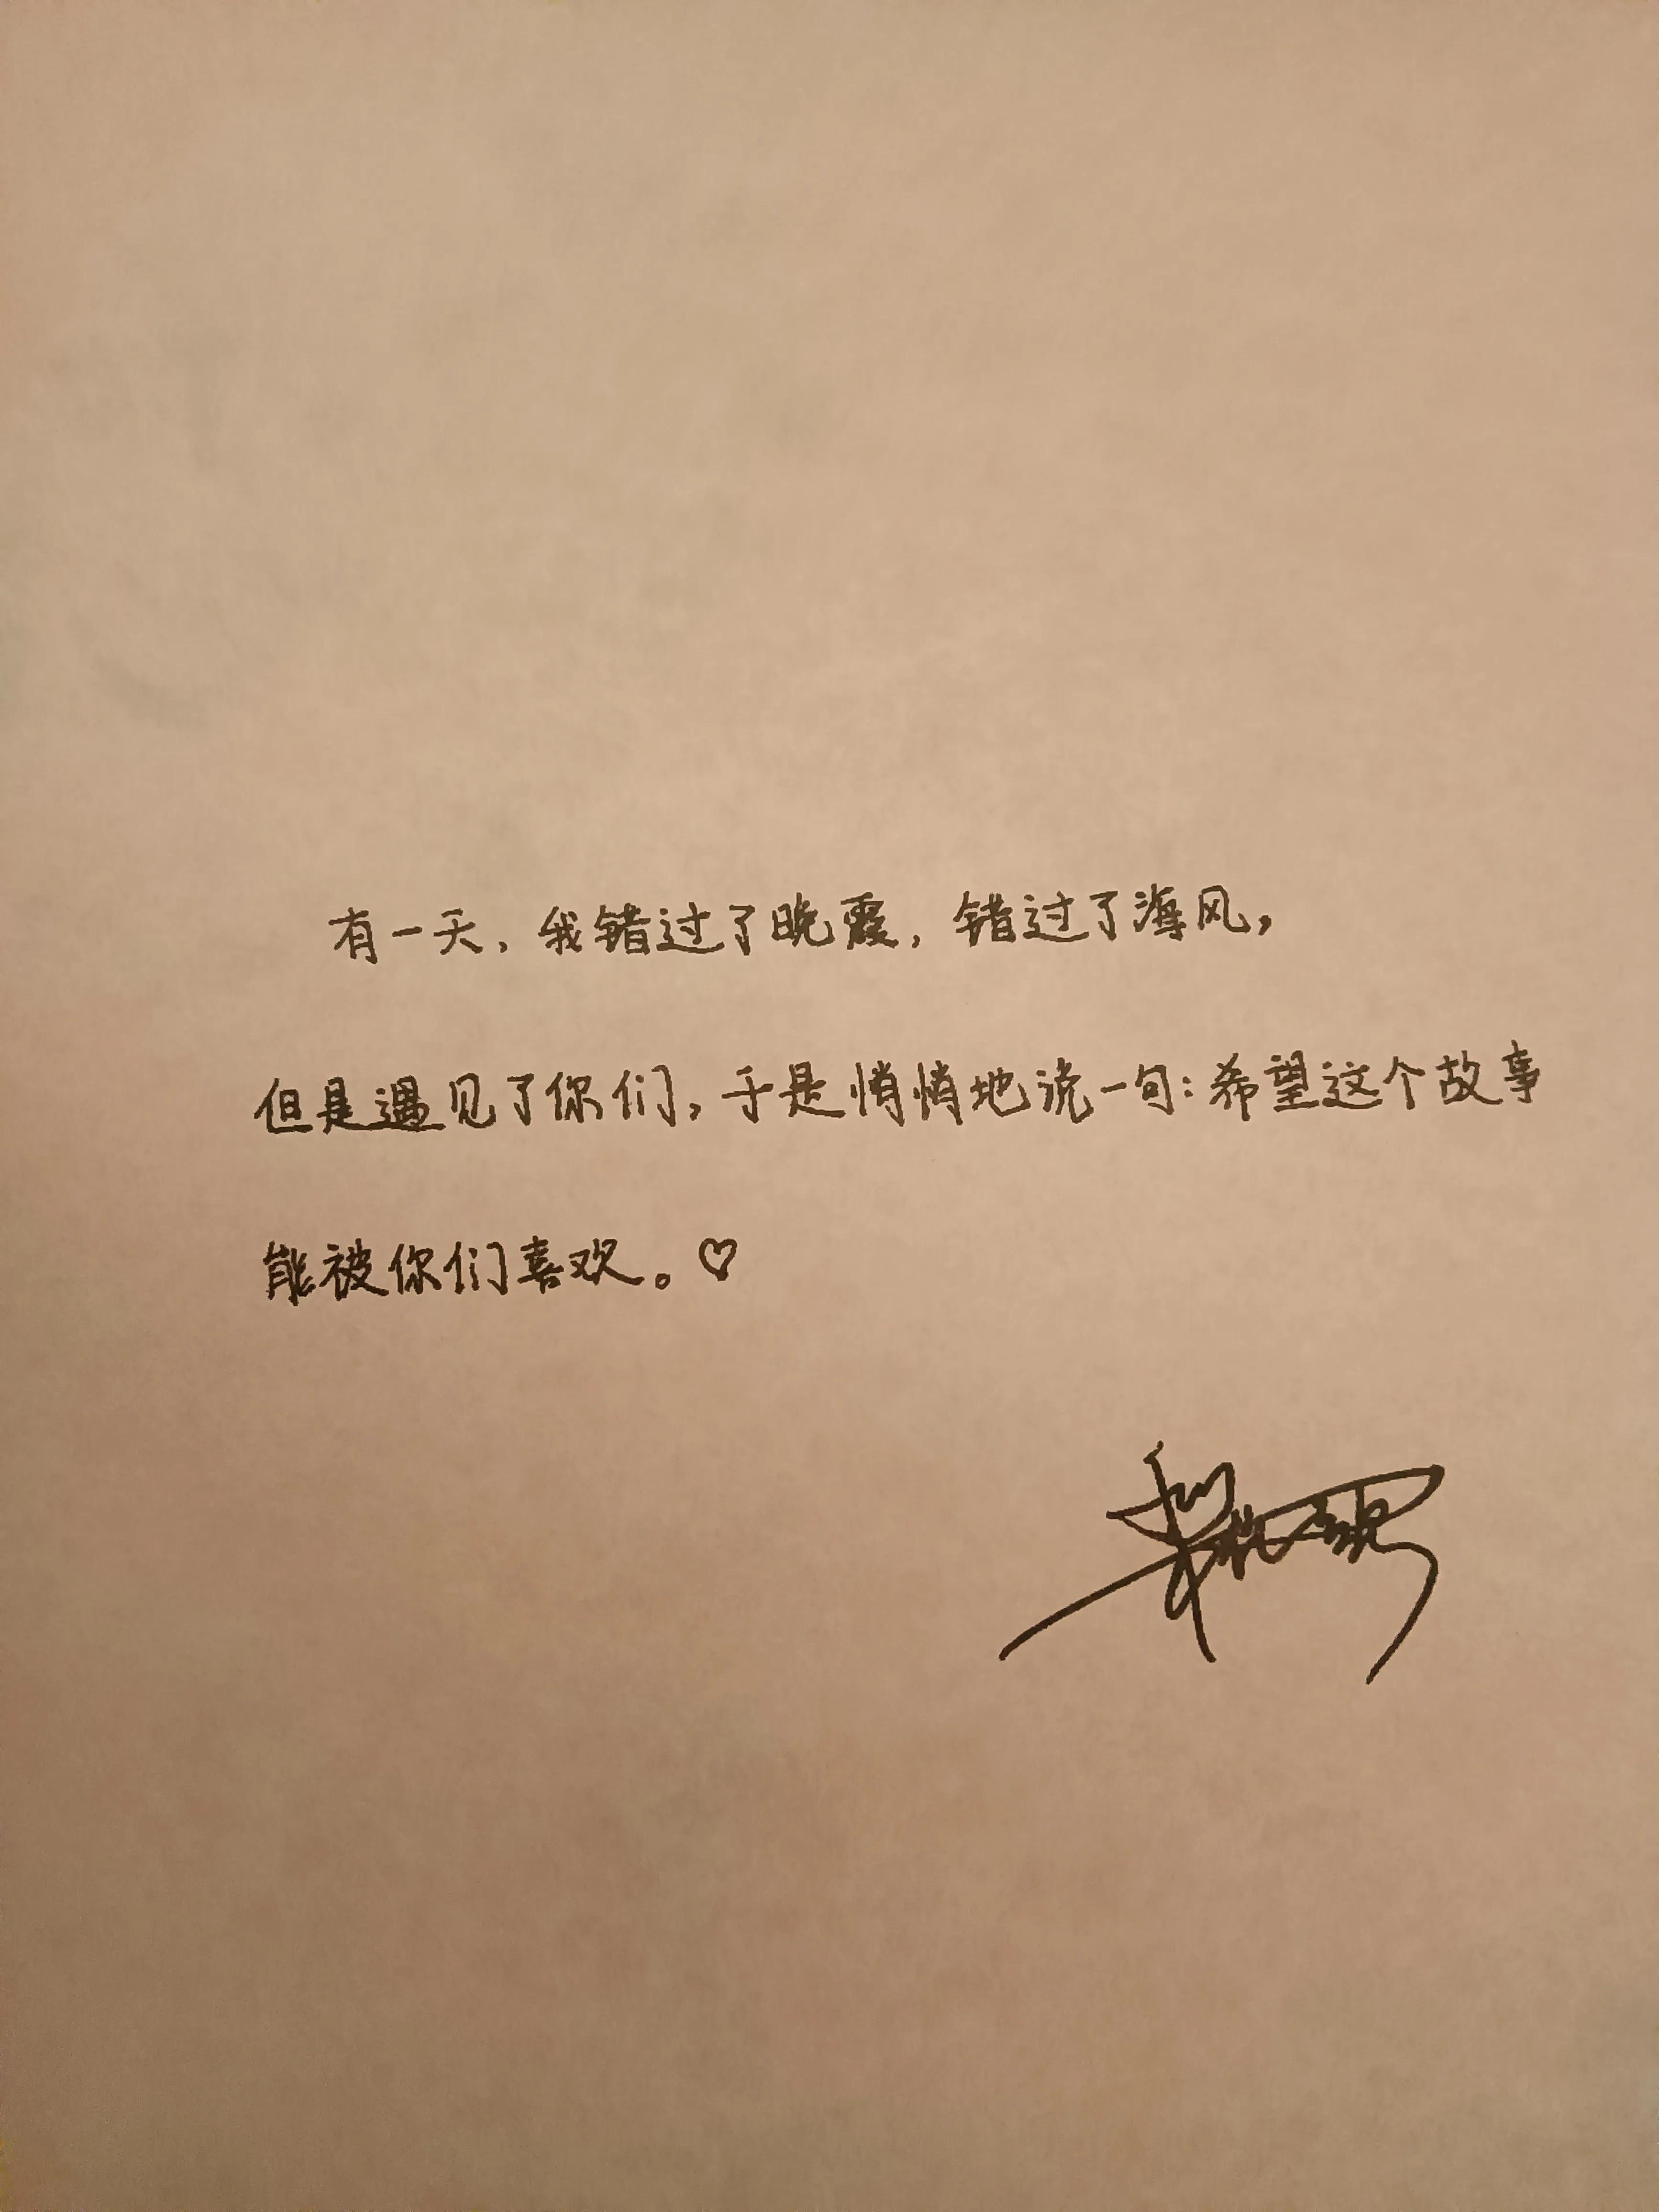 有一天，我错过了晚霞，错过了海风，
但是遇见了你们，于是悄悄地说一句：希望这个故事
能被你们喜欢。♡